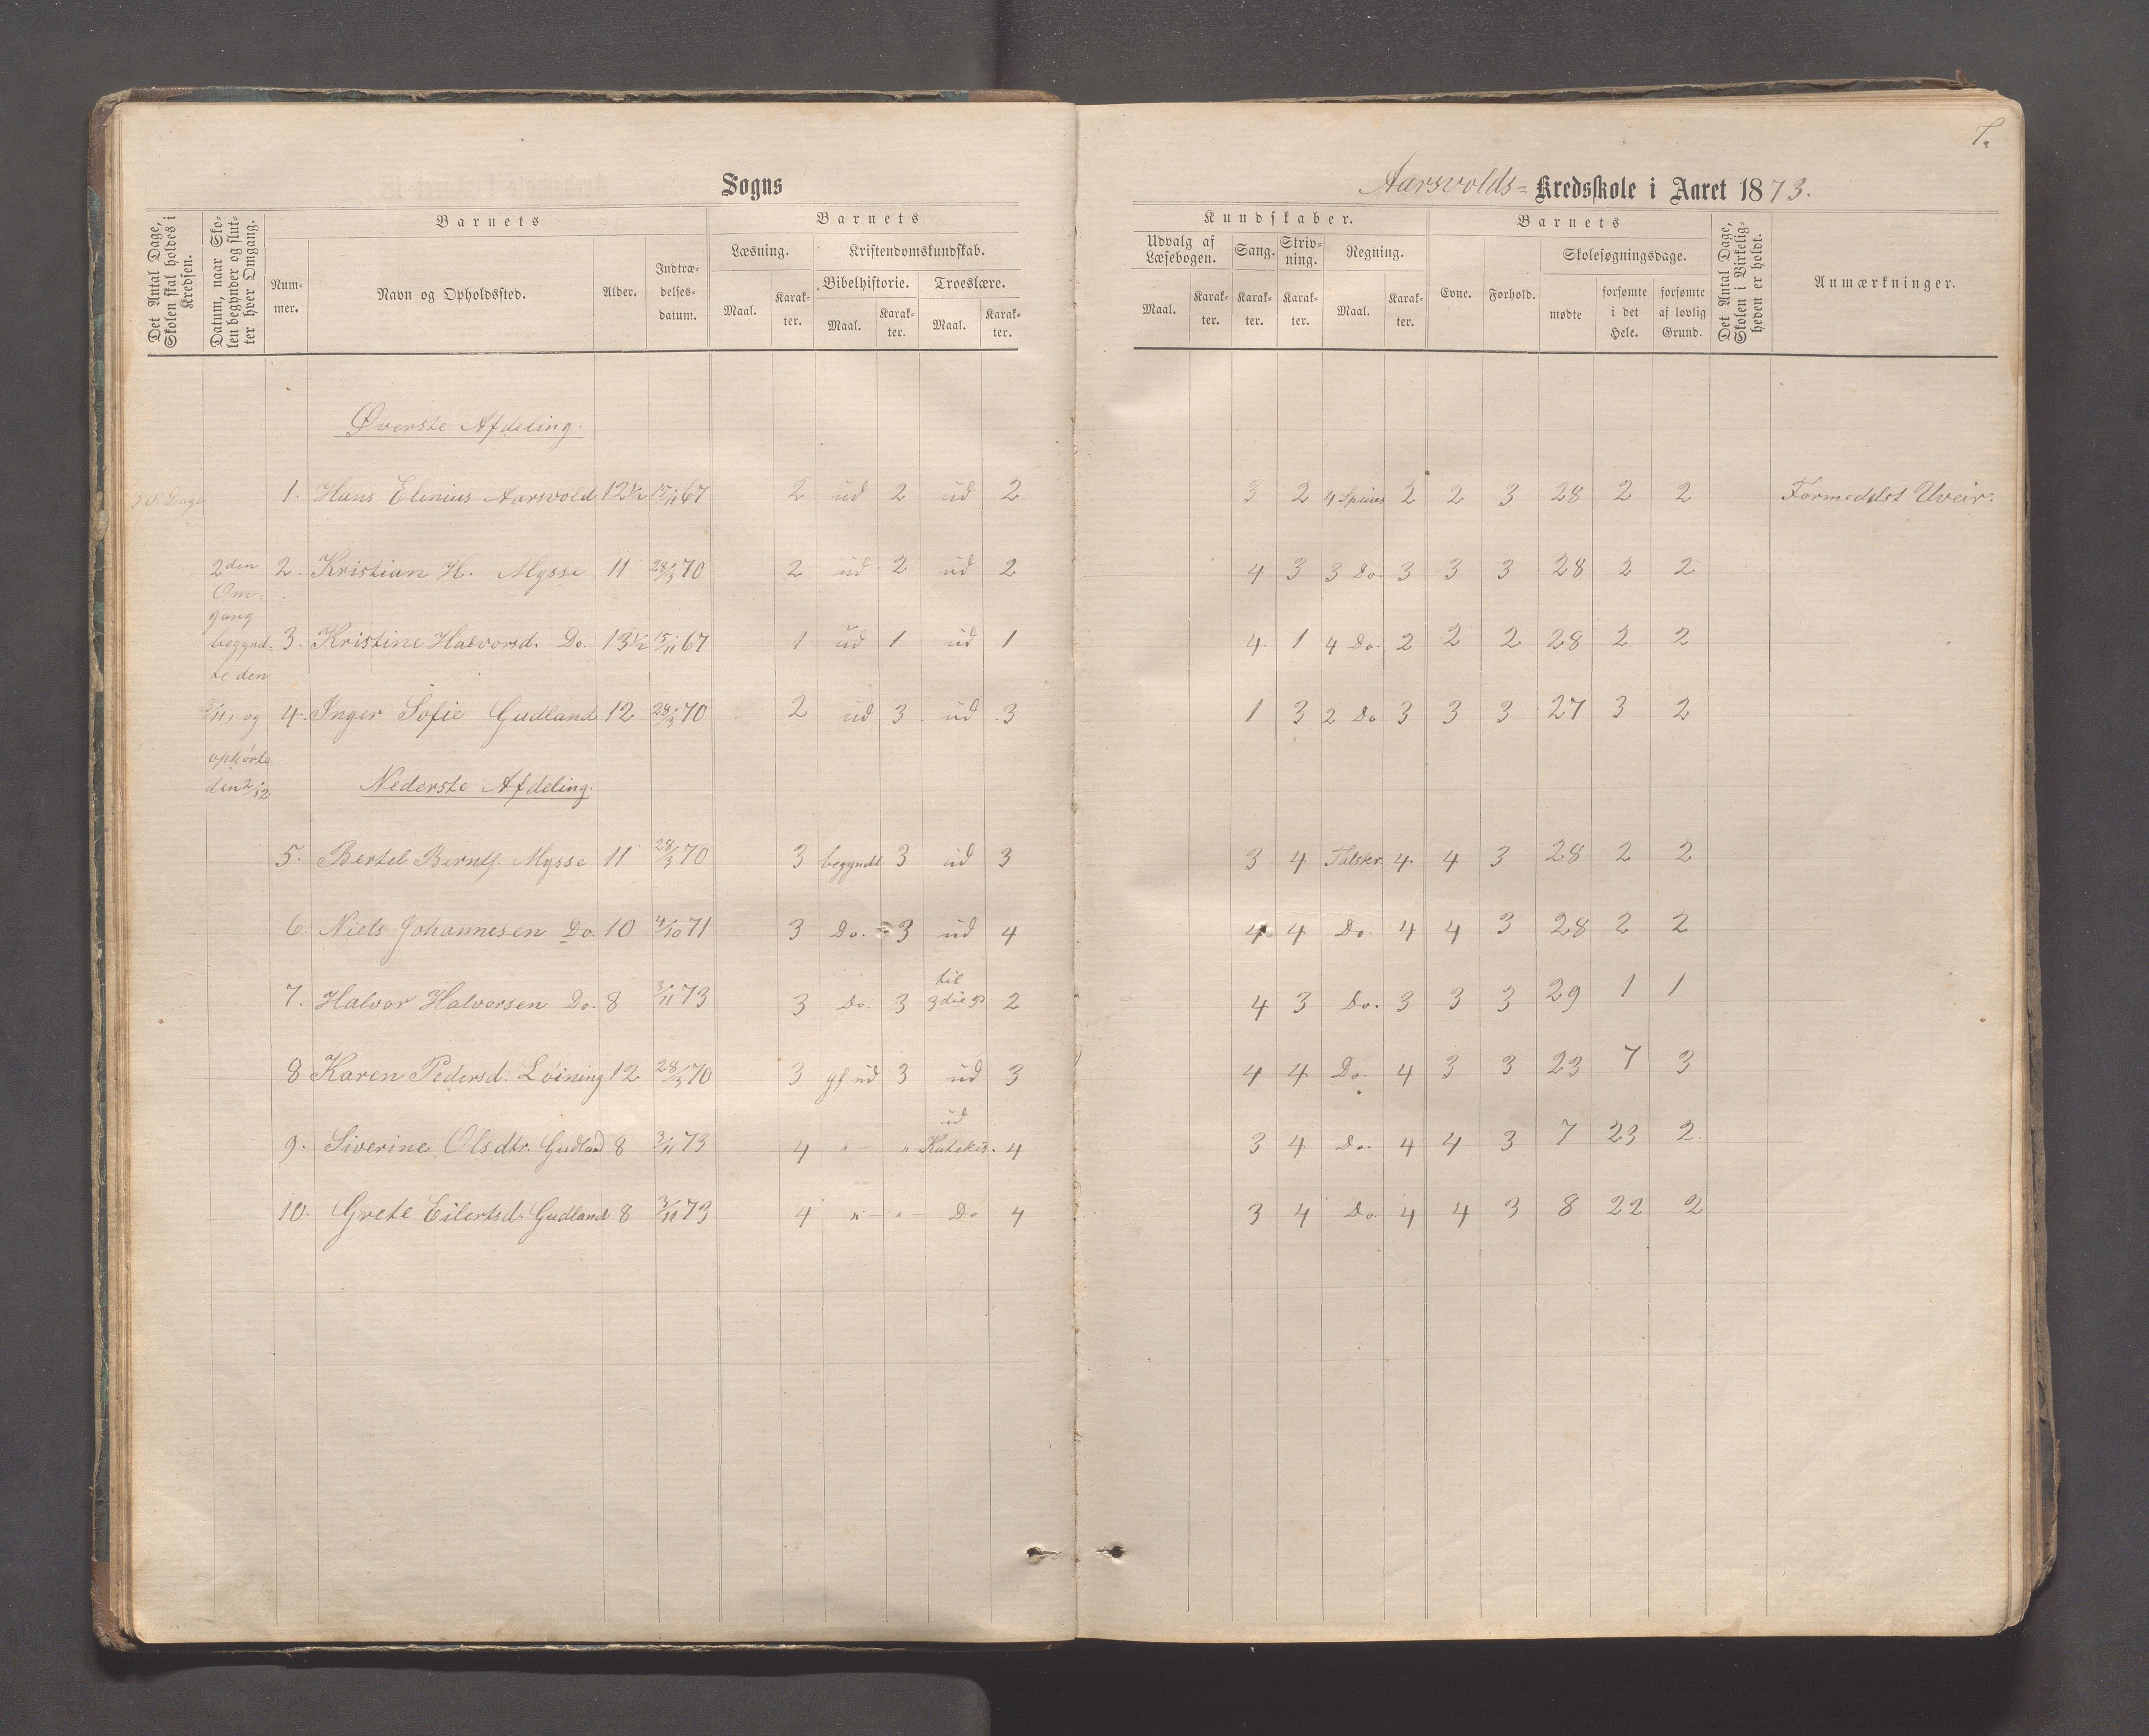 7.
Sogns
Aarsvolds= Kredsskole i Aaret 1873.
Det Antal Dage, Skolen skal holdes i Kredsen.
Datum, naar Skolen begynder og slutter hver Omgang.
Barnets
Nummer.
Navn og Opholdssted.
Alder.
Indtrædelsesdatum.
Barnets
Læsning.
Kristendomskundskab.
Bibelhistorie.
Troeslære.
Maal.
Karakter.
Maal.
Karakter.
Maal.
Karakter.
Kundskaber.
Udvalg af Læsebogen.
Sang.
Skrivning.
Regning.
Maal.
Karakter.
Karakter.
Karakter.
Maal.
Karakter.
Barnets
Evne.
Forhold.
Skolesøgningsdage.
mødte
forsømte i det Hele.
forsømte af lovlig Grund.
Det Antal Dage, Skolen i Virkeligheden er holdt.
Anmærkninger.
Øverste Afdeling.
Dage 1. Hans Elenius Aarsvold 12½ 15/11 67 2 ud 2 ud 2 3 2 4 Species 2 2 3 28 2 2 Formedelst Uveir.
2den Omgang begyndte den 3/11, og ophørte den 2/12
2. Kristian H. Mysse 11 28/3 70 2 ud 2 ud 2 4 3 3 Do. 3 3 3 28 2 2
3. Kristine Halvorsd. Do. 13½ 15/11 67 1 ud 1 ud 1 4 1 4 Do. 2 2 2 28 2 2
4. Inger Sofie Gudland 12 28/3 70 2 ud 3 ud 3 1 3 2 Do 3 3 3 27 3 2
Nederste Afdeling.
5. Bertel Berntj. Mysse 11 28/3 70 3 begyndt 3 ud 3 3 4 Talskr. 4 4 3 28 2 2
6. Niels Johannesen Do. 10 4/10 71 3 Do. 3 ud 4 4 4 Do. 4 4 3 28 2 2
7. Halvor Halvorsen Do. 8 3/11 73 3 Do. 3 til 3die 2 4 3 Do. 3 3 3 29 1 1
8 Karen Pedersd. Løining 12 28/3 70 3 gl ud 3 ud 3 4 4 Do. 4 3 3 23 7 3
9. Siverine Olsdtr. Gudland 8 3/11 73 4 " " ud Katekis. 4 3 4 Do. 4 4 3 7 23 2
10. Grete Eilertsd. Gudland 8 3/11 73 4 " " Do 4 3 4 Do. 4 4 3 8 22 2